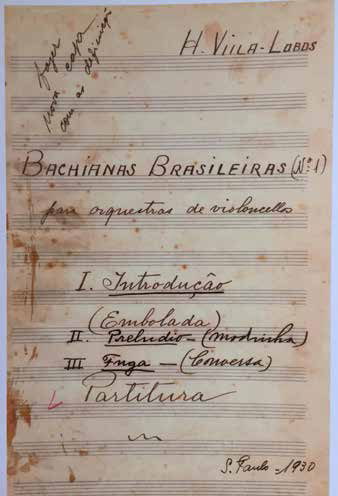 fazer
nova capa
com as definições
H. VILLA-LOBOS
BACHIANAS BRASILEIRAS (Nº 1)
para orquestras de violoncellos
I. Introdução
(Embolada)
II. Preludio - (Modinha)
III Fuga - (Conversa)
Partitura
S. Paulo - 1930